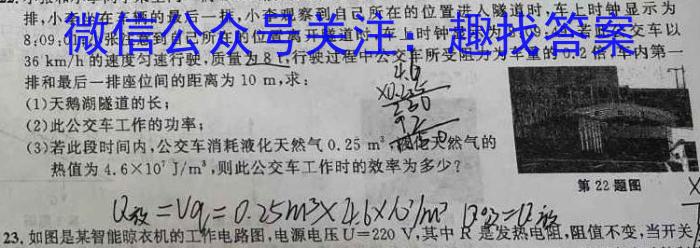 排,小 在车厢的最后一排,小 观察到自己所在的位置进入隧道时,车上时钟显示为
8:09:0 张 意到自己所在的位置离开隧道时 车上时钟 为 交车以
微信公众号关注:趣找答案
36 km/h 的速度匀速行驶,质量为 8 t,行驶过程中公交车所受阻力为车重的 0.2 倍,车内第一
排和最后一排座位间的距离为 10 m,求:
(1)天鹅湖隧道的长;
(2)此公交车工作的功率;
(3)若此段时间内,公交车消耗液化天然气 0.25 m³,液化天然气的
热值为 4.6×10⁷ J/m³,则此公交车工作时的效率为多少?
4.6
×0.25
230
92
第 22 题图
Q放=Vq=0.25m³×4.6×10⁷/m³ Q吸=Q放
23. 如图是某智能晾衣机的工作电路图,电源电压 U=220 V,其中 R 是发热电阻,阻值不变,当开关